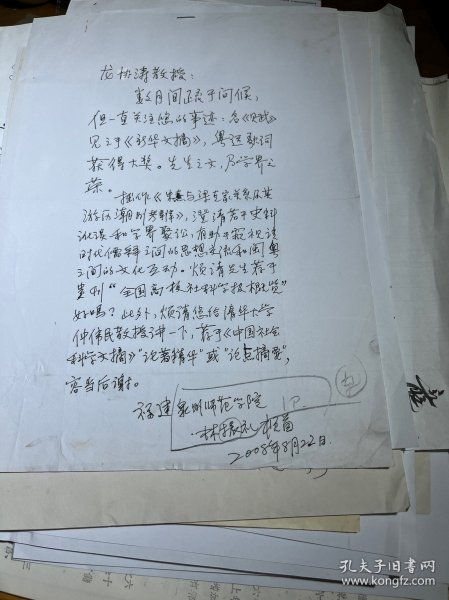 龙协涛教授：
数月间疏于问候，
但一直关注您的事迹：名《
见之于《新华文摘》，粤迅歌词
获得大奖。先生之文，乃学界之
荣。
拙作《朱熹与梁克家关系及其
游历潮州考释》，澄清若干史料
讹误和学界聚讼，有助于窥视该
时代儒释之间的思想交流和闽粤
之间的文化互动。烦请先生荐于
贵刊“全国高校社科学报概览”
好吗？此外，烦请您给清华大学
仲伟民教授讲一下，荐于《中国社会
科学文摘》“论著精华”或“论点摘要”，
容当后谢。
福建泉州师范学院
林振礼
2008年8月22日.
孔夫子旧书网
www.kongfz.com